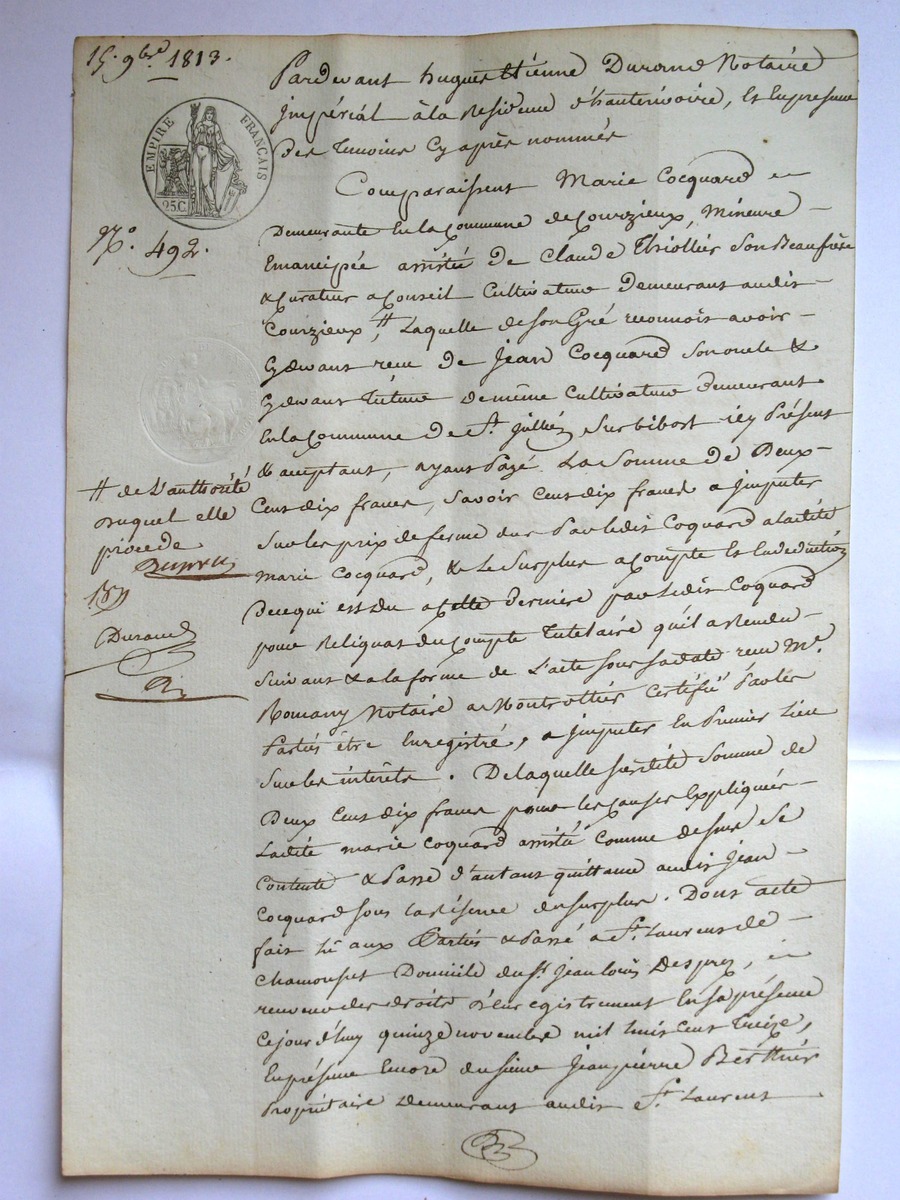 15. 9bre 1813.
EMPIRE FRANÇAIS
25C.
No. 492.
Pardevant hugues Etienne Durand Notaire
impérial à la Residence d'hauterivoire, et En presence
des temoins Cy après nommés
Comparaissent Marie Cocquard
Demeurante En la Commune de Courzieux, Mineure
Emancipée assistée de Claude Thiollier Son Beaufrère
& Curateur a Conseil Cultivateur Demeurant audit
Courzieux, # Laquelle de Son Gré reconnoit avoir
Cydevant recu de Jean Cocquard Son oncle &
Cydevant Tuteur De même Cultivateur demeurant
En la Commune de St. Jullien Sur bibost icy Présent
& acceptant, ayant Payé La Somme de Deux
Cent dix francs, Savoir Cent dix francs a imputer
Sur les prix de ferme dus Par ledit Cocquard a ladite
Marie Cocquard, & Le Surplus a Compte Et En deduction
De ce qui est Du a Cette derniere par Ledit Cocquard
pour Reliquat du Compte Tutelaire qu'il a Rendu
Suivant & a la forme de L'acte Sous Sa date recu Me.
Romany Notaire a Montrottier Certifié Par les
Parties être Enregistré, a imputer En Premier Lieu
Sur les intérêts. De laquelle susdite Somme de
Deux Cent dix francs pour les Causes Expliquées
Ladite marie Cocquard assistée Comme dessus Se
Contente & Passe d'autant quittance audit Jean
Cocquard Sous la réserve du Surplus. Dont acte
fait Lû aux Parties & Passé a St. Laurent de
Chamousset Domicile du Sr. Jean louis Desprez,
receveur des droits d'Enregistrement En Sa présence
Ce jour d'huy quinze novembre mil huit Cent Treize,
En présence Encore du Sieur Jean pierre Berthier
Propriétaire Demeurant audit St. Laurent
# de L'authorité
duquel elle
procede
Durand